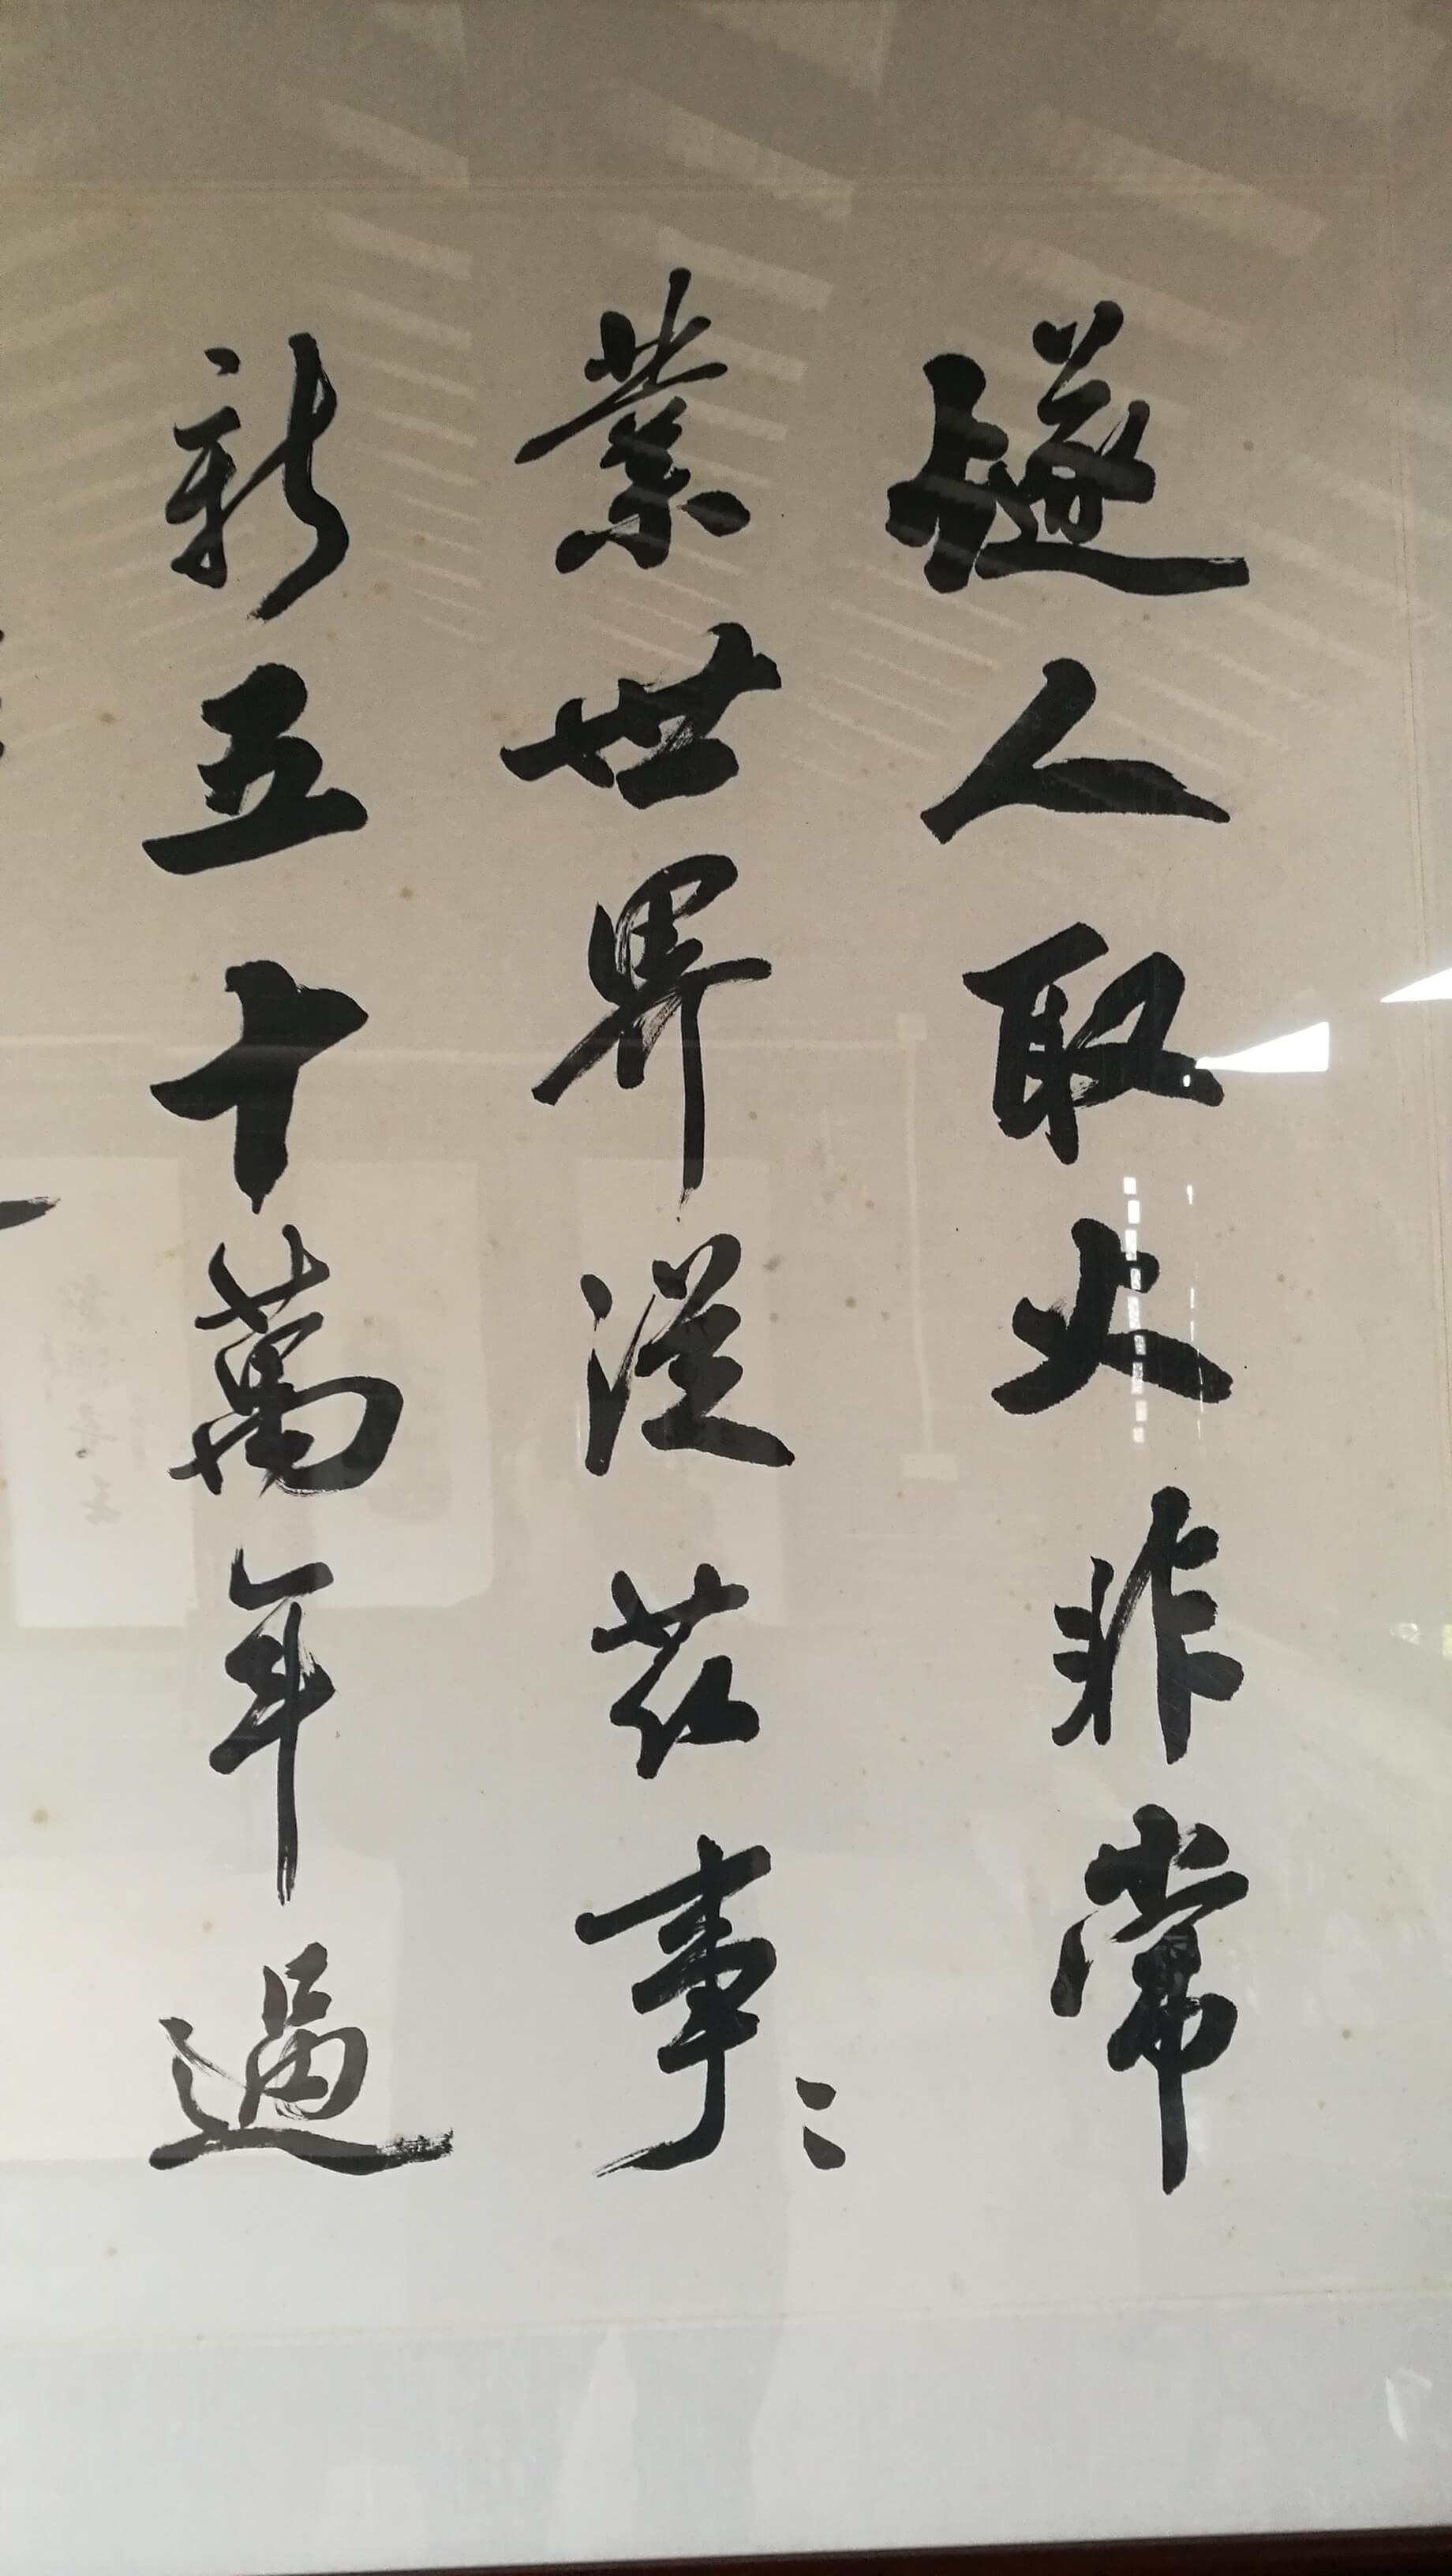 燧人取火非常
業世界從茲事〻
新五十萬年過